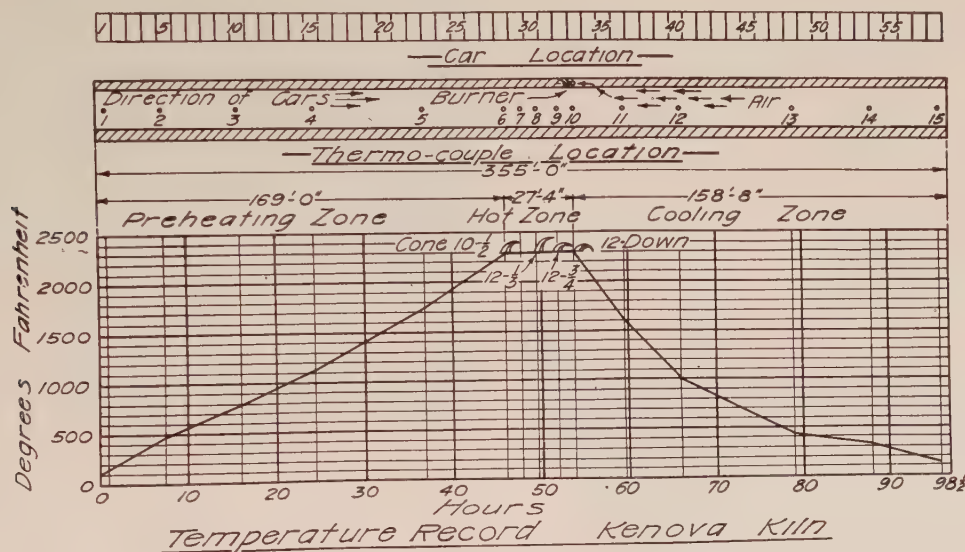 1 5 10 15 20 25 30 35 40 45 50 55
Car Location
Direction of Cars Burner Air
1 2 3 4 5 6 7 8 9 10 11 12 13 14 15
Thermo-couple Location
355'-0"
169'-0" 27'-4" 158'-8"
Preheating Zone Hot Zone Cooling Zone
Degrees Fahrenheit
2500
2000
1500
1000
500
0
Cone 10-½ 12-Down
12-⅓ 12-¾
0 10 20 30 40 50 60 70 80 90 98½
Hours
Temperature Record Kenova Kiln